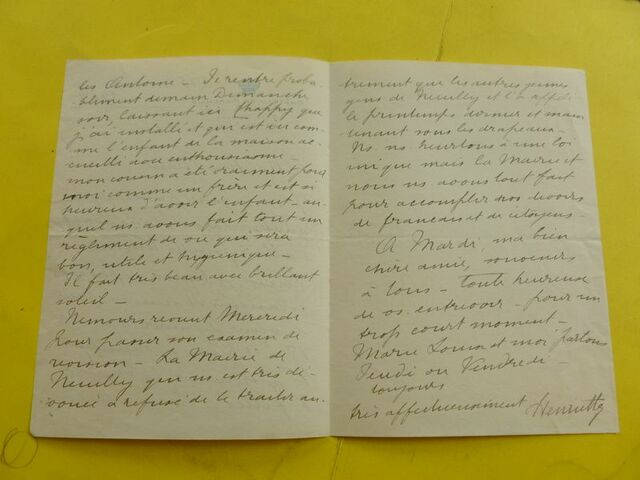 les Antoine – Je rentre proba-
blement demain Dimanche
soir, laissant ici Chappy que
j'ai installé et qui est ici com-
me l'enfant de la maison ac-
cueilli avec enthousiasme –
mon cousin a été vraiment pour
moi comme un frère et est si
heureux d'avoir l'enfant – au-
quel ns avons fait tout un
règlement de vie qui sera
bon, utile et hygiénique –
Il fait très beau avec brillant
soleil –
Nemours revient Mercredi
pour passer son examen de
revision – La Mairie de
Neuilly qui ns est très dé-
vouée a refusé de le traiter au-
trement que les autres jeunes
gens de Neuilly et l'a appelé
le printemps dernier et main-
tenant sous les drapeaux –
Ns ns heurtons à une loi
inique mais la Mairie et
nous ns avons tout fait
pour accomplir nos devoirs
de français et de citoyens –
A Mardi, ma bien
chère amie, souvenirs
à tous – toute heureuse
de vs. entrevoir – pour un
trop court moment –
Marie Louise et moi partons
Jeudi ou Vendredi
toujours
très affectueusement Henriette